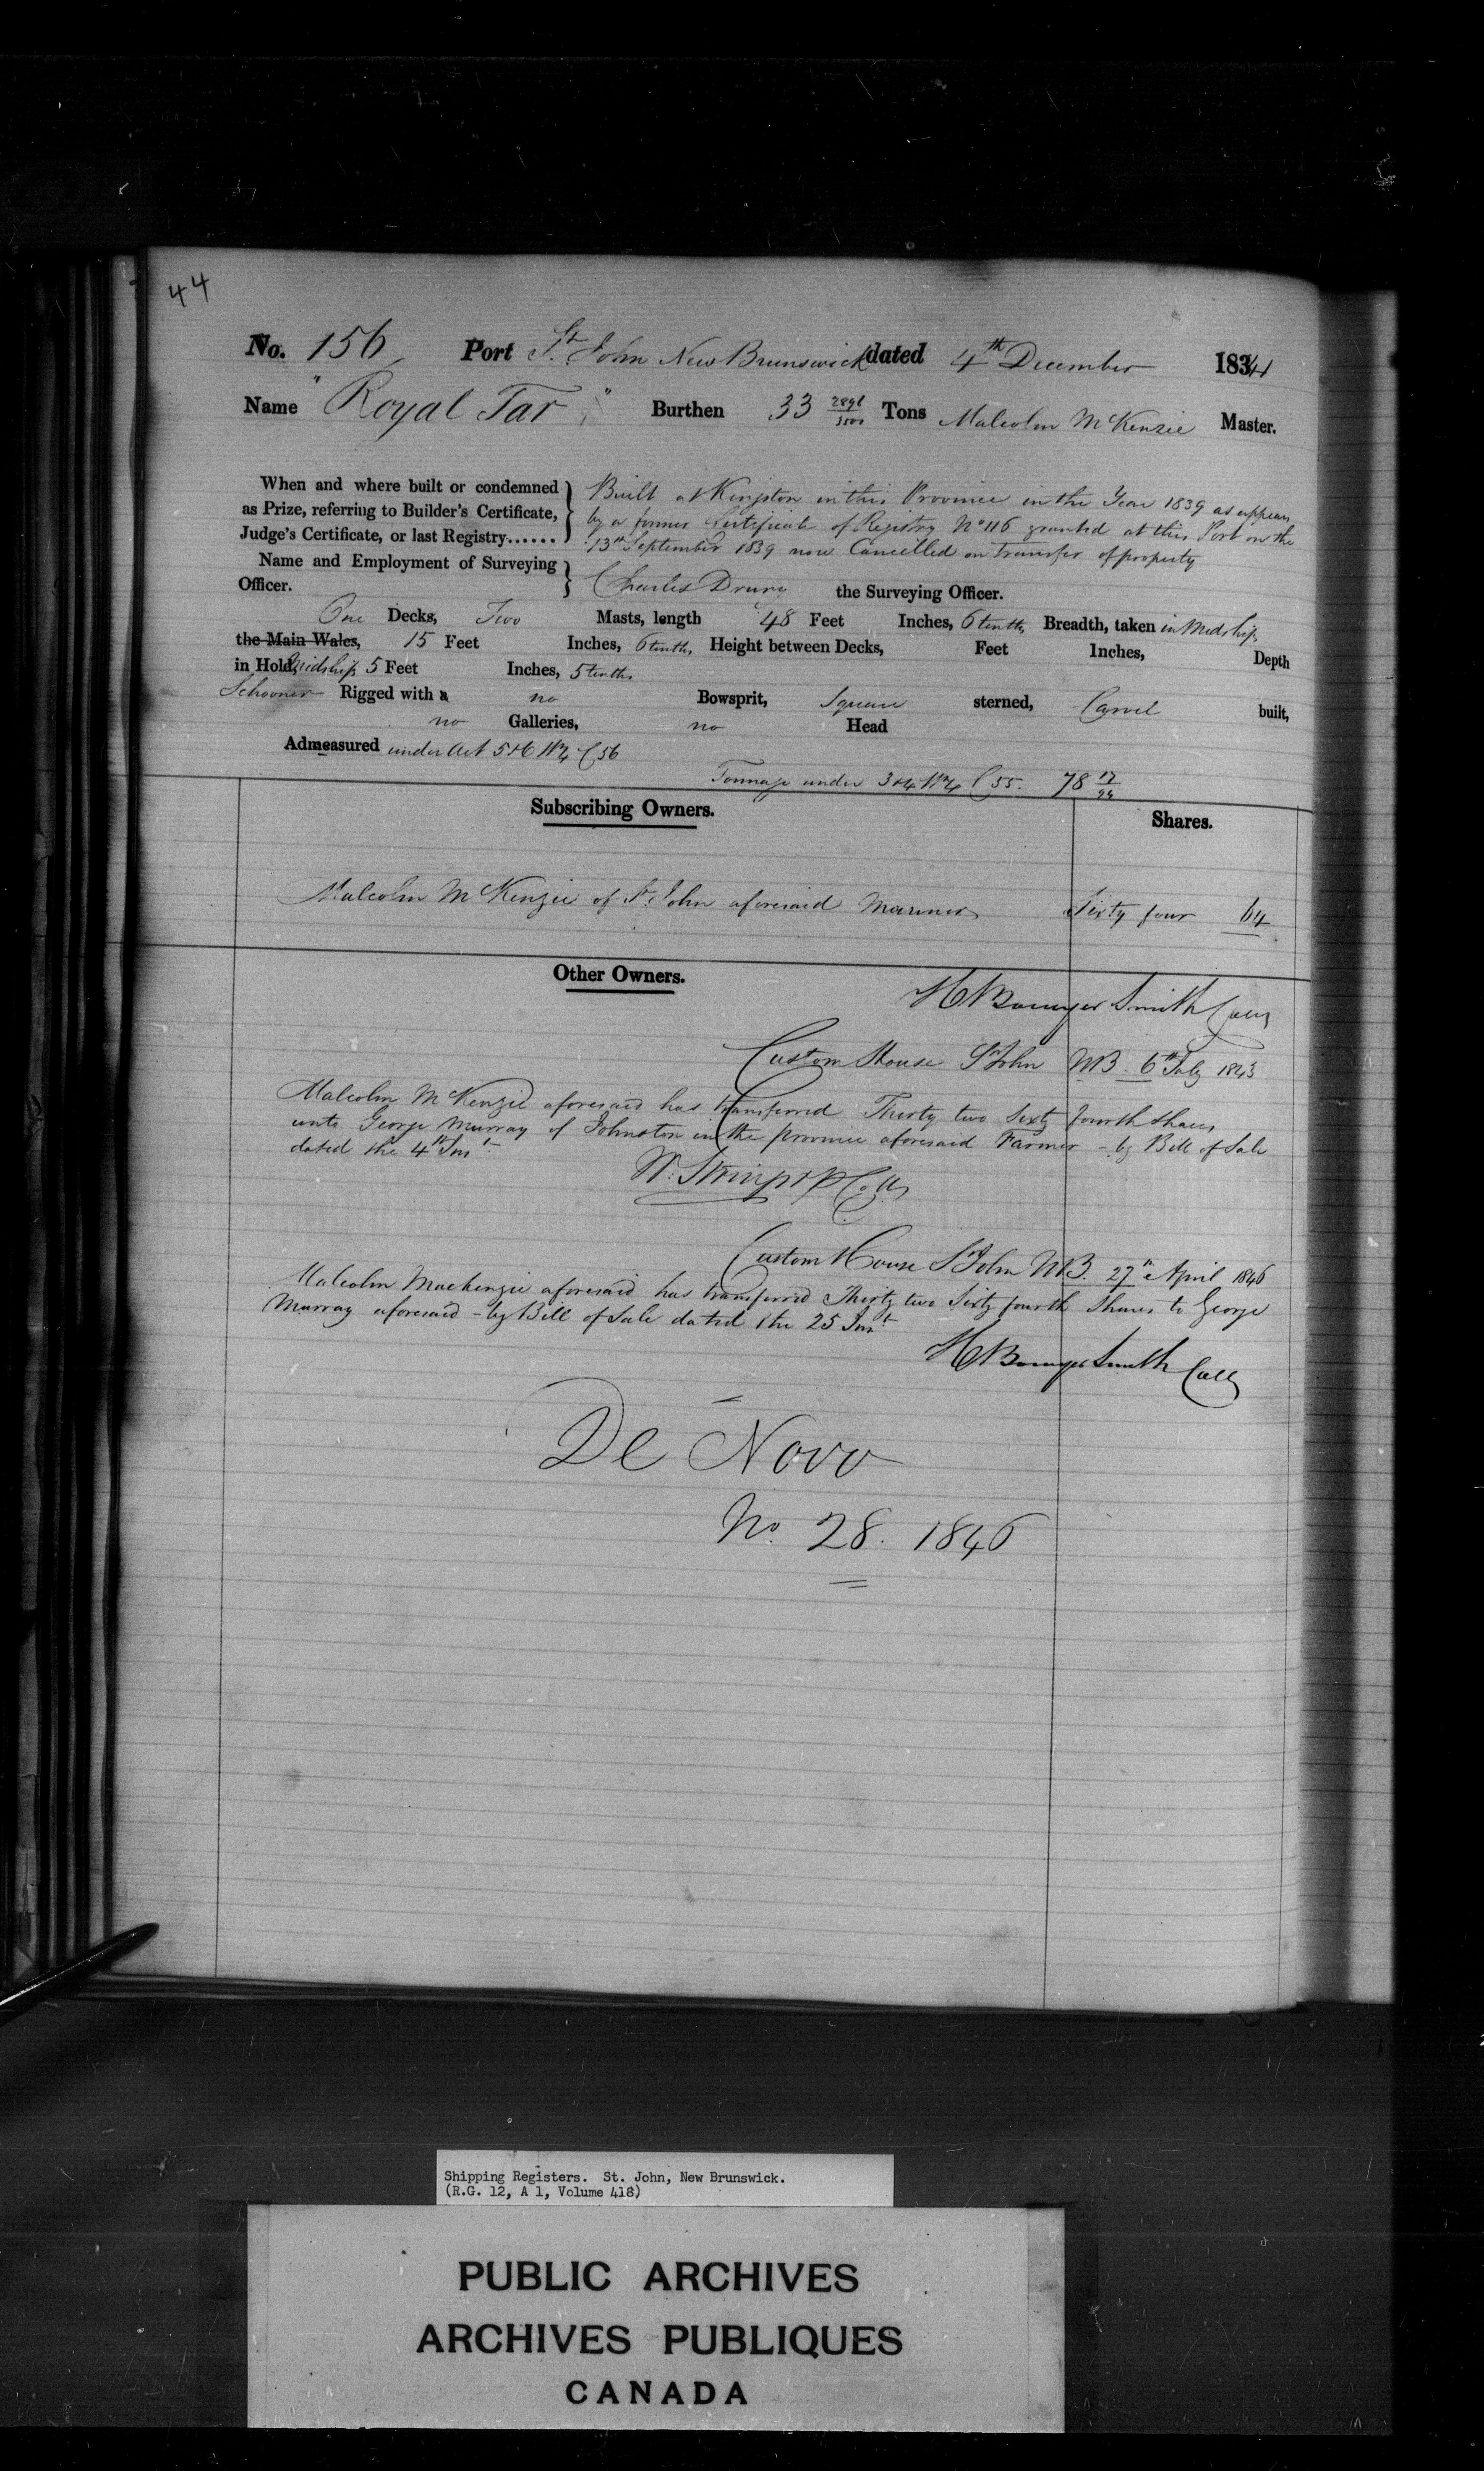 44
No. 156 Port St. John New Brunswick dated 4th December 1841
Name "Royal Tar" Burthen 33 2891/3500 Tons Malcolm McKenzie Master.
When and where built or condemned
as Prize, referring to Builder's Certificate,
Judge's Certificate, or last Registry......
Built at Kingston in this Province in the Year 1839 as appears
by a former Certificate of Registry No 116 granted at this Port on the
13th September 1839 now Cancelled on transfer of property
Name and Employment of Surveying
Officer.
Charles Drury the Surveying Officer.
One Decks, Two Masts, length 48 Feet Inches, 6 tenths Breadth, taken in Midships
the Main Wales, 15 Feet Inches, 6 tenths, Height between Decks, Feet Inches, Depth
in Hold, Midships 5 Feet Inches, 5 tenths
Schooner Rigged with a no Bowsprit, Square sterned, Carvel built,
no Galleries, no Head
Admeasured under Act 5+6 Wm 4 C 56
Tonnage under 3+4 Wm 4 C 55. 78 17/94
Subscribing Owners. Shares.
Malcolm McKenzie of St. John aforesaid Mariner Sixty four 64
Other Owners.
H Bowyer Smith Collr
Custom House St John NB. 6th July 1843
Malcolm McKenzie aforesaid has transferred Thirty two Sixty fourth Shares
unto George Murray of Johnston in the province aforesaid Farmer - by Bill of Sale
dated the 4th Inst
Custom House St John NB. 27th April 1846
Malcolm Mackenzie aforesaid has transferred Thirty two Sixty fourth Shares to George
Murray aforesaid - by Bill of Sale dated the 25 Inst
H Bowyer Smith Collr
De Novo
No. 28. 1846
Shipping Registers. St. John, New Brunswick.
(R.G. 12, A 1, Volume 418)
PUBLIC ARCHIVES
ARCHIVES PUBLIQUES
CANADA